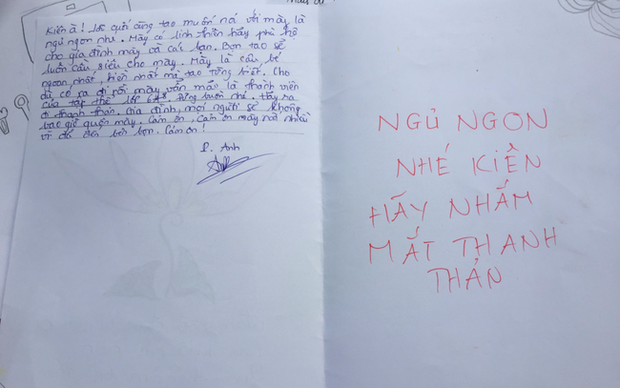 Kiên à! lời cuối cùng tao muốn nói với mày là
ngủ ngon nhé. Mày có linh thiên hãy phù hộ
cho gia đình mày và các bạn. Bọn tao sẽ
luôn cầu siêu cho mày. Mày là cậu bé
ngoan nhất, hiền nhất mà tao từng biết. Cho
dù có ra đi rồi mày vẫn mãi là thành viên
của tập thể lớp Đừng buồn nhé. Hãy ra
đi thanh thản. Gia đình, mọi người sẽ không
bao giờ quên mày. Cảm ơn, cảm ơn mày rất nhiều
vì đã đến bên bọn. Cảm ơn!
P. Anh
NGỦ NGON
NHÉ KIÊN
HÃY NHẮM
MẮT THANH
THẢN